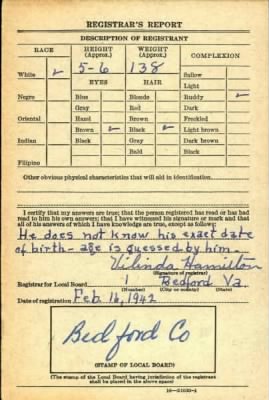 REGISTRAR'S REPORT
DESCRIPTION OF REGISTRANT
RACE HEIGHT (Approx.) WEIGHT (Approx.) COMPLEXION
White ✓ 5-6 138 Sallow
EYES HAIR Light
Negro Blue Blonde Ruddy ✓
Gray Red Dark
Oriental Hazel Brown Freckled
Brown ✓ Black ✓ Light brown
Indian Black Gray Dark brown
Bald Black
Filipino
Other obvious physical characteristics that will aid in identification
I certify that my answers are true; that the person registered has read or has had
read to him his own answers; that I have witnessed his signature or mark and that
all of his answers of which I have knowledge are true, except as follows:
He does not know his exact date
of birth - age is guessed by him.
Vilinda Hamilton
(Signature of registrar)
Registrar for Local Board Bedford Va.
(Number) (City or county) (State)
Date of registration Feb 16, 1942
Bedford Co
(STAMP OF LOCAL BOARD)
(The stamp of the Local Board having jurisdiction of the registrant
shall be placed in the above space)